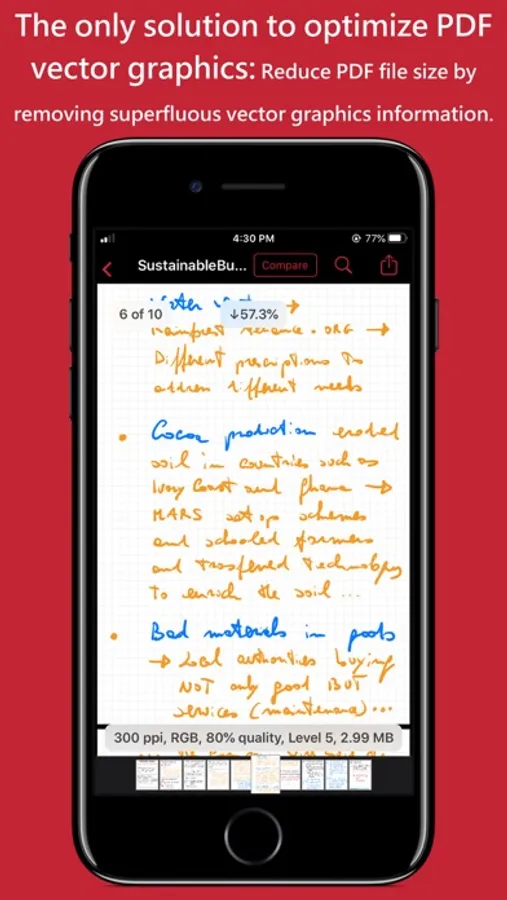 The only solution to optimize PDF
vector graphics: Reduce PDF file size by
removing superfluous vector graphics information.
4:30 PM
77%
SustainableBu...
Compare
6 of 10
↓57.3%
→
. ORG →
Different prescriptions to
address different needs
• Cocoa production eroded
soil in countries such as
Ivory Coast and Ghana →
MARS set up schemes
and schooled farmers
and transferred technology
to enrich the soil ...
• Bad materials in goods
→ Local authorities buying
NOT only good BUT
services (maintenance)...
300 ppi, RGB, 80% quality, Level 5, 2.99 MB